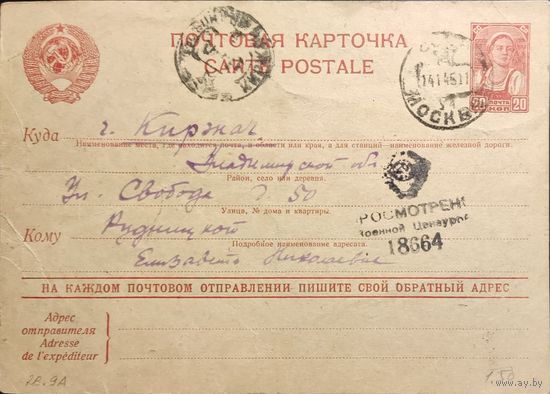 ПОЧТОВАЯ КАРТОЧКА
CARTE POSTALE
МОСКВА
14 1 46 11
ПОЧТА
20 КОП 20
Куда г. Киржач
Наименование места, где находится почта, и области или края, а для станций—наименование железной дороги.
Владимирской обл
Район, село или деревня.
Ул. Свобода д 50
Улица, № дома и квартиры.
Кому Рудницкой
Подробное наименование адресата.
Елизавете Николаевне
ПРОСМОТРЕНО
Военной Цензурой
18664
НА КАЖДОМ ПОЧТОВОМ ОТПРАВЛЕНИИ ПИШИТЕ СВОЙ ОБРАТНЫЙ АДРЕС
Адрес
отправителя
Adresse
de l'expéditeur
www.ay.by